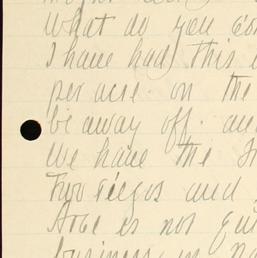 What do you con
I have had this
per acre. on the
be away off. and
We have the
Two sieges and
is not
business in